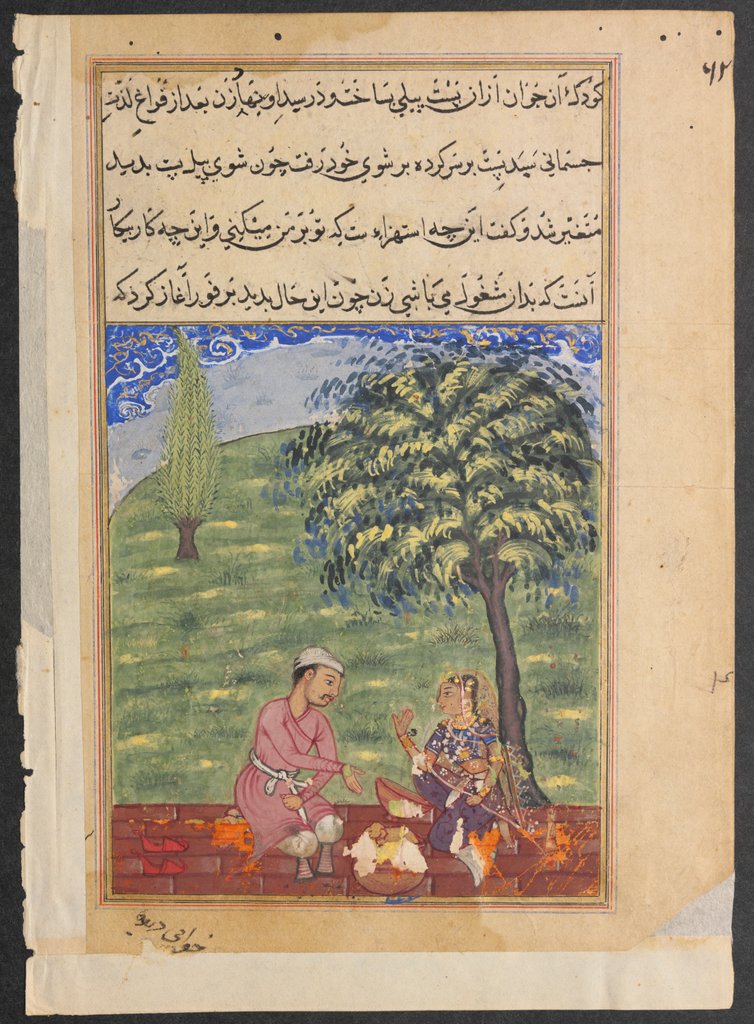 کودکی آن جوان ازان پست پیلی ساخته و در سبد او بنهاد زن بعد از فراغ لذت
جسمانی سبد پست بر سر کرده بر شوی خود رفت چون شوی پیل پست بدید
متغیر شد و گفت این چه استهزاء ست که تو بر من میکنی و این چه کار بیکار
آنست که بدان مشغول می باشی زن چون این حال بدید بر فور آغاز کرد که